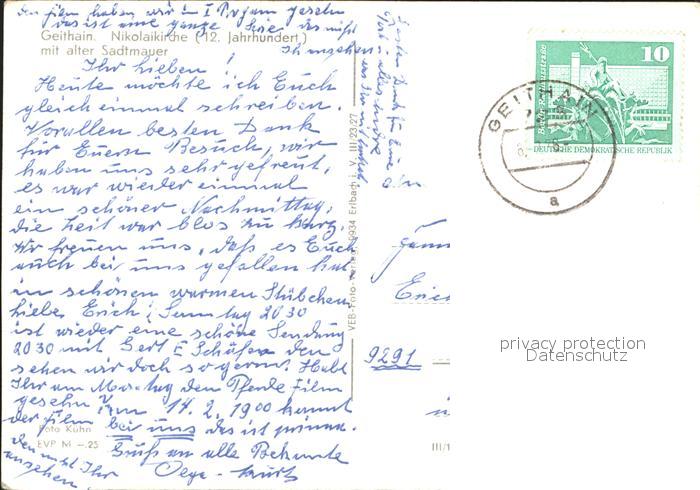 den film haben wir im I Program gesehn
das ist eine ganze Serie das müßt
Ihr ansehen
Geithain. Nikolaikirche (12. Jahrhundert)
mit alter Sadtmauer
Ihr lieben!
Heute möchte ich Euch
gleich einmal schreiben.
Vorallen besten Dank
für Euern Besuch, wir
haben uns sehr gefreut,
es war wieder einmal
ein schöner Nachmittag,
die Zeit war blos zu kurz.
Wir freuen uns, daß es Euch
auch bei uns gefallen hat
im schönen warmen Stübchen
liebe Erich, Sonntag 20 30
ist wieder eine schöne Sendung
20 30 mit Gert E Schäfer den
sehen wir doch so gerne. Habt
Ihr am Montag den Pferde Film
gesehn? am 14. 2. 1900 kommt
der film bei uns das ist prima.
Foto Kühn
EVP M –.25
Gruß an alle Bekannte
Olga Kurt
den müßt Ihr
ansehen.
Besten Dank für Eure
VEB-Foto-Verlag, 9934 Erlbach i. V. III/23/27
10
Berlin, Rathausstraße
DEUTSCHE DEMOKRATISCHE REPUBLIK
GEITHAIN
a
An
Fam
Eric
9291
III/1
privacy protection
Datenschutz